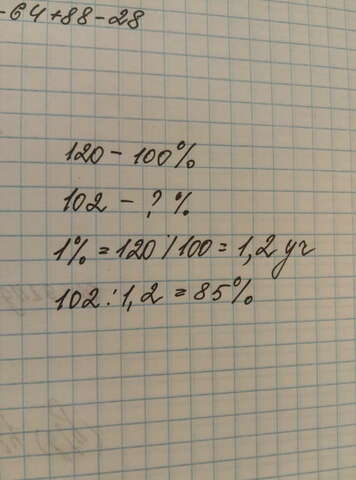 -64+88-28
120 - 100%
102 - ? %
1% = 120/100 = 1,2 уч
102 : 1,2 = 85%